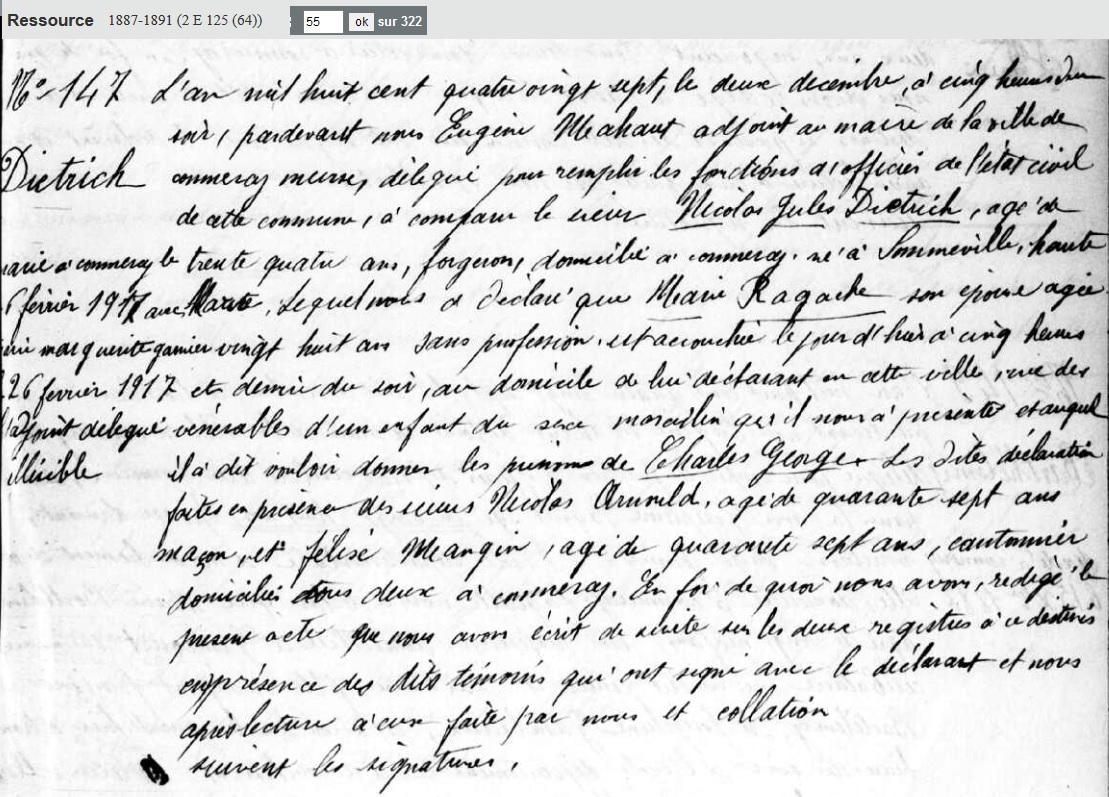 Ressource 1887-1891 (2 E 125 (64)) : 55 ok sur 322
N° 147 L'an mil huit cent quatre vingt sept, le deux decembre, à cinq heures du
soir, pardevant nous Eugène Mahaut adjoint au maire de la ville de
Dietrich commercy meuse, délégué pour remplir les fonctions d'officier de l'état civil
de cette commune, à comparu le sieur Nicolas Jules Dietrich, agé de
marié à commercy le trente quatre ans, forgeron, domicilié à commercy. né à Sommeville, haute
6 février 1917 avec Marne, Lequel nous a déclaré que Marie Ragache son épouse agée
marguerite garnier vingt huit ans sans profession. est accouchée le jour d'hui à cinq heures
26 fevrier 1917 et demie du soir, au domicile de lui déclarant en cette ville, rue des
l'adjoint délégué vénérables d'un enfant du sexe masculin qu'il nous a présenté et auquel
illisible il a dit vouloir donner les prenoms de Charles George. Les dites déclaration
faites en présence des sieurs Nicolas, agé de quarante sept ans
maçon, et félise Mangin, agé de quarante sept ans, cantonnier
domiciliés tous deux à commercy. En foi de quoi nous avons, redigé le
present acte que nous avons écrit de suite sur les deux registres à ce destinés
en présence des dits témoins qui ont signé avec le déclarant et nous
après lecture à eux faite par nous et collation
suivent les signatures.